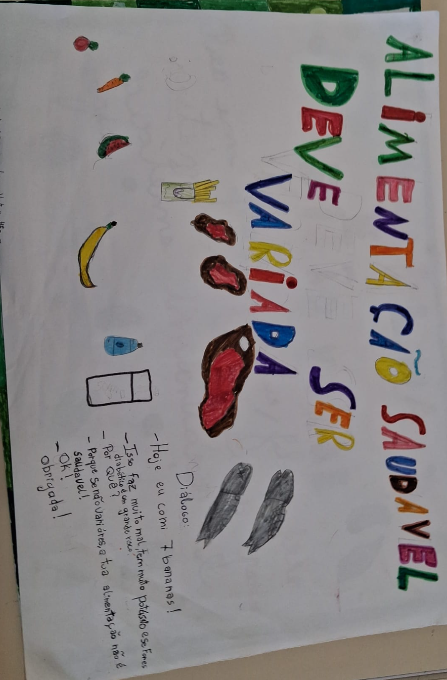 ALIMENTAÇÃO SAUDAVEL
DEVE SER
VARIADA
Diálogo:
- Hoje eu comi 7 bananas!
- Isso faz muito mal, tem muito potássio e se fores
diabético é um grande risco
- Por quê?
- Porque se não variares, a tua alimentação não é
saudavel!
- Ok!
Obrigada!